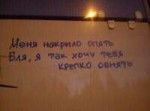 Меня накрыло опять
Бля, я так хочу тебя
крепко обнять